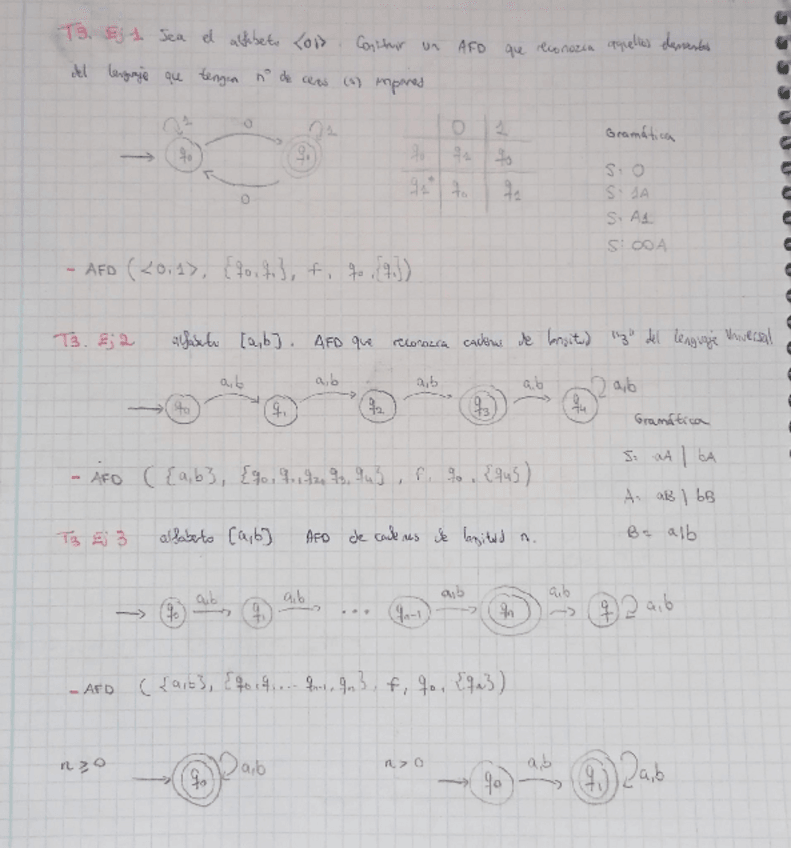 T3. Ej 1 Sea el alfabeto <0,1>. Construir un AFD que reconozca aquellos elementos
del lenguaje que tengan nº de ceros (s) impares
1 0 1
q0 q1
0
0 1
q0 q1 q0
q1* q0 q1
Gramática
S: 0
S: 1A
S: A1
S: 00A
- AFD (<0,1>, {q0,q1}, f, q0,{q1})
T3. Ej 2 alfabeto [a,b]. AFD que reconozca cadenas de longitud "3" del lenguaje Universal
a,b a,b a,b a,b a,b
q0 q1 q2 q3 q4
Gramática
S: aA | bA
A: aB | bB
B= a|b
- AFD ({a,b}, {q0,q1,q2,q3,q4}, f, q0, {q4})
T3 Ej 3 alfabeto [a,b] AFD de cadenas de longitud n.
a,b a,b a,b a,b
q0 q1 ... qn-1 qn q a,b
- AFD ({a,b}, {q0,q1... qn-1,qn}, f, q0, {qn})
n ≥ 0 q0 a,b n > 0 q0 a,b q1 a,b